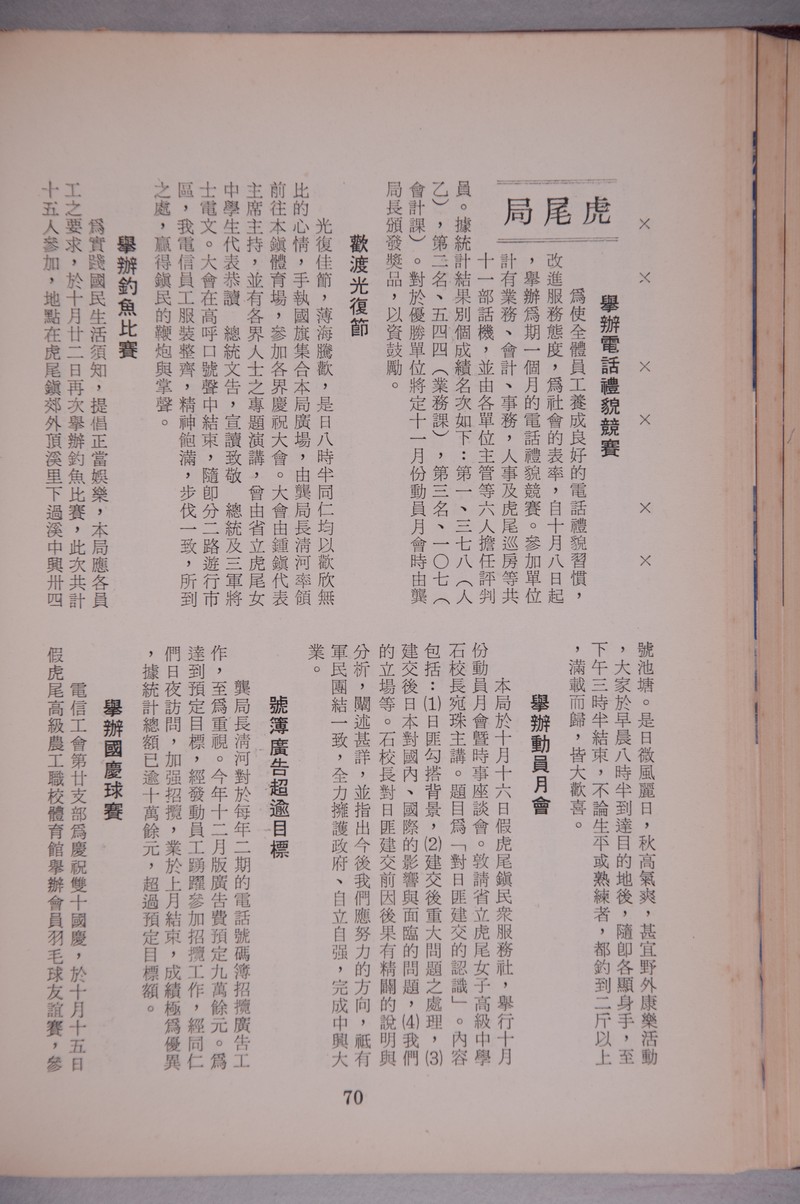 × × × × × ×
虎尾局
舉辦電話禮貌競賽
為使全體員工養成良好的電話禮貌習慣，
改進服務態度，為社會的表率，自十月八日起
，舉辦為期一個月的電話禮貌競賽。參加單位
計有業務、會計、事務，人事及虎尾巡房等共
十一部話機，並由各單位主管等六人擔任評判
員。據統計結果別個成績名次如下：第一、三七八（人
乙），第二名、五四四（業務課），第三名、一〇七（
會計課）。對於優勝單位將定十一月份動員月會時由龔
局長頒發獎品，以資鼓勵。
歡渡光復節
光復佳節，薄海騰歡，是日八時半同仁均以歡欣無
比的心情，手執國旗集合本局廣場，由龔局長清河率領
前往本鎮體育場，參加各界慶祝大會。大會由鍾鎮代表
主席主持，並有各界人士之專題演講，曾由省立虎尾女
中學生代表恭讀　總統文告，宣讀致敬　總統及三軍將
士電文。大會在高呼口號聲中結束，隨卽分二路遊行市
區，我電信員工服裝整齊，精神飽滿，步伐一致，所到
之處，贏得鎮民的鞭炮與掌聲。
舉辦釣魚比賽
為實踐國民生活須知，提倡正當娛樂，本局應各員
工之要求，於十月廿二日再次舉辦釣魚比賽，此次共計
十五人參加，地點在虎尾鎮郊外頂溪里下過溪中興卅四
號池塘。是日微風麗日，秋高氣爽，甚宜野外康樂活動
，大家於早晨八時半到達目的地後，隨卽各顯身手，至
下午三時半結束，不論生平或熟練者，都釣到二斤以上
，滿載而歸，皆大歡喜。
舉辦動員月會
本局於十月十六日假虎尾鎮民衆服務社，舉行十月
份動員月會暨時事座談會。敦請省立虎尾女子高級中學
石校長宛珠主講。題目為「對日匪建交的認識」。內容
包括：⑴日匪勾搭背景，⑵建交後重大問題之處理，⑶
建交後日本對國內、國際的影響與面臨的問題，⑷我們
的立場等。石校長對日匪建交前因後果有精闢的說明與
分析，闡述甚詳，並指出今後我們應努力的方向，祗有
軍民團結一致，全力擁護政府、自立自强，完成中興大
業。
號簿廣告超逾目標
龔局長清河對於每年二期的電話號碼簿招攬廣告工
作，至為重視。今年十二月版廣告費預定九萬餘元。為
達到預定目標，經發動員工踴躍參加招攬工作，經同仁
們日夜訪問，加强招攬，業於上月結束，成績極為優異
，據統計總額已逾十萬餘元，超過預定目標額。
舉辦國慶球賽
電信工會第廿支部為慶祝雙十國慶，於十月十五日
假虎尾高級農工職校體育館舉辦會員羽毛球友誼賽，參
70